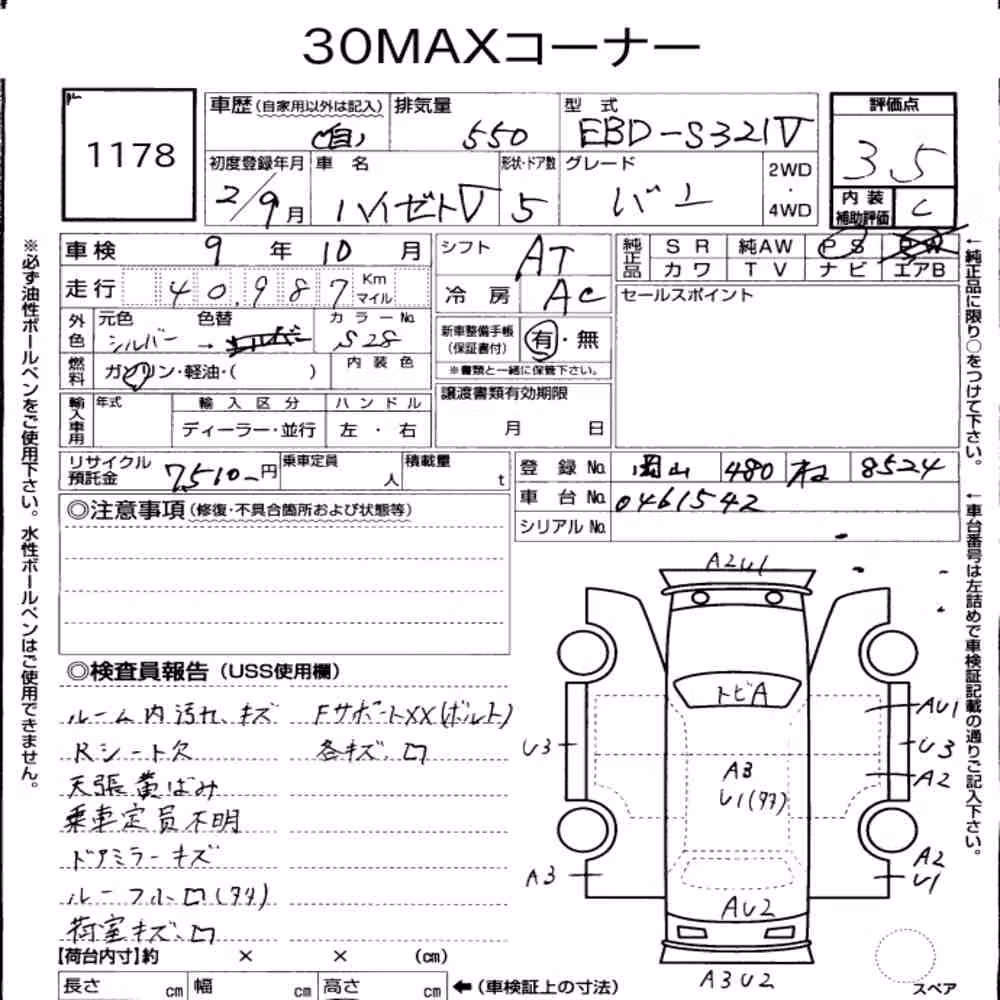 30MAXコーナー
1178
車歴(自家用以外は記入) 排気量 型 式 評価点
(自) 550 EBD-S321V 3.5
初度登録年月 車 名 形状・ドア数 グレード 2WD・4WD 内装補助評価 C
2/9月 ハイゼトV 5 バン
車検 9 年 10 月 シフト AT 純正品 SR 純AW PS PW
カワ TV ナビ エアB
走行 40,987 Km マイル 冷 房 AC セールスポイント
外色 元色 色替 カラーNo.
シルバー → S28
新車整備手帳(保証書付) 有・無
※書類と一緒に保管下さい。
燃料 ガソリン・軽油・( ) 内装色
譲渡書類有効期限
月 日
輸入車用 年式 輸入区分 ハンドル
ディーラー・並行 左・右
リサイクル預託金 7,510-円 乗車定員 人 積載量 t
登録No. 岡山 480 8524
車台No. 0461542
シリアルNo.
◎注意事項(修復・不具合箇所および状態等)
◎検査員報告(USS使用欄)
ルーム内汚れ、キズ FサポートXX(ボルト)
Rシート欠 各キズ、凹
天張黄ばみ
乗車定員不明
ドアミラーキズ
荷室キズ、凹
【荷台内寸】約 × × (cm)
長さ cm 幅 cm 高さ cm ←(車検証上の寸法)
A2U1
トビA
AU1
U3
U3
A2
A3
A3
A2
U1
AU2
A3U2
スペア
※必ず油性ボールペンをご使用下さい。水性ボールペンはご使用できません。
←純正品に限り○をつけて下さい。
←車台番号は左詰めで車検証記載の通りご記入下さい。